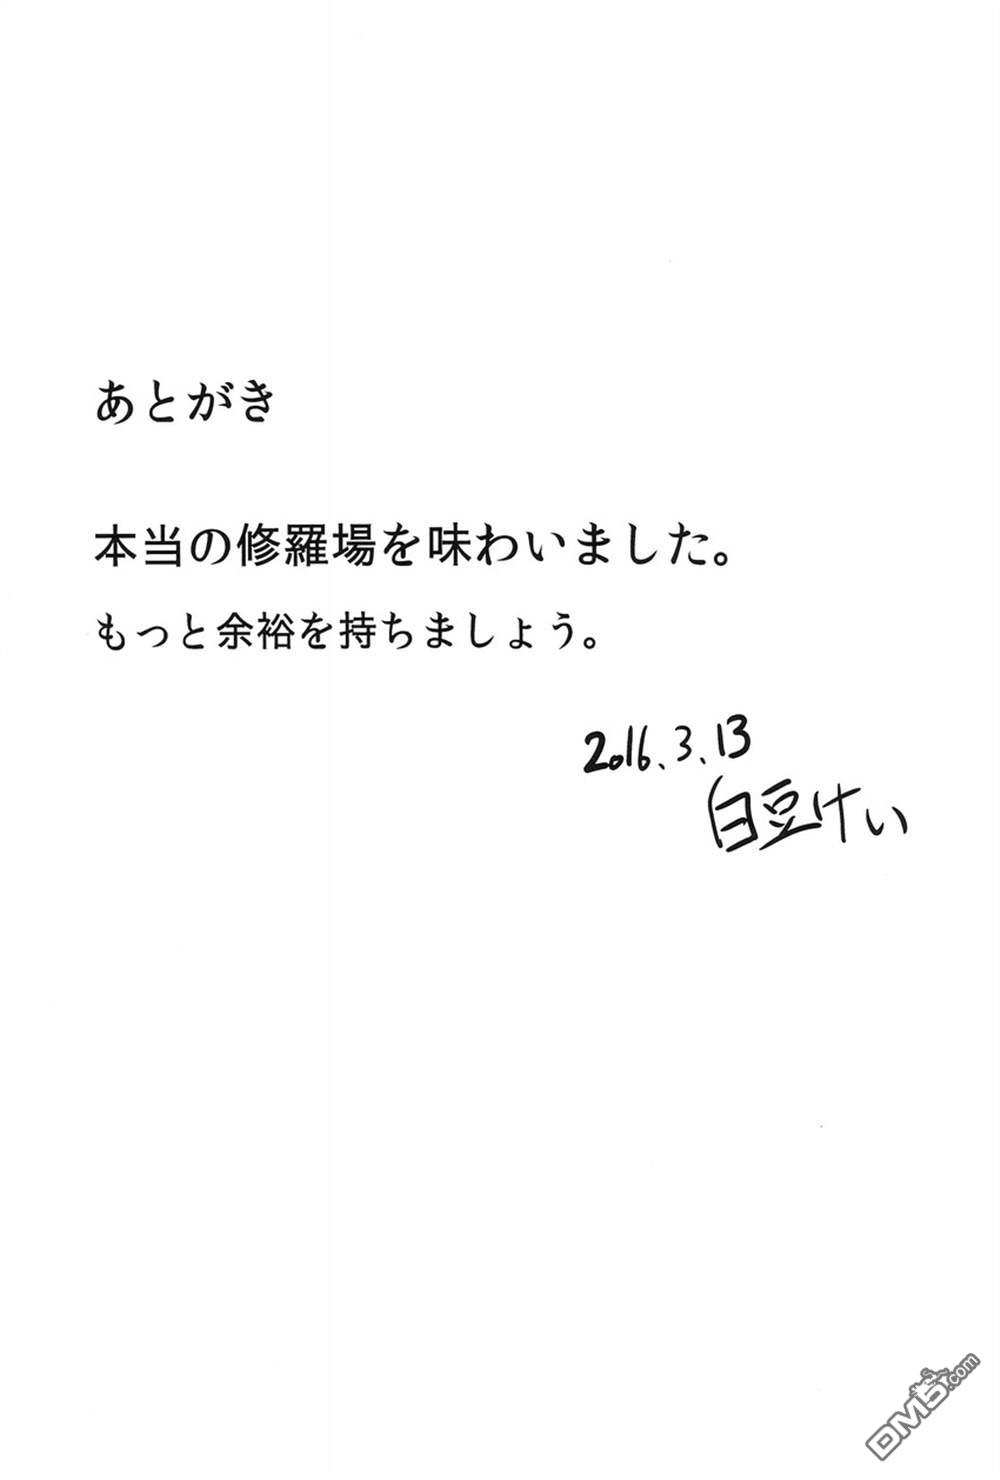 あとがき
本当の修羅場を味わいました。
もっと余裕を持ちましょう。
2016.3.13
白豆けい
DM5.com